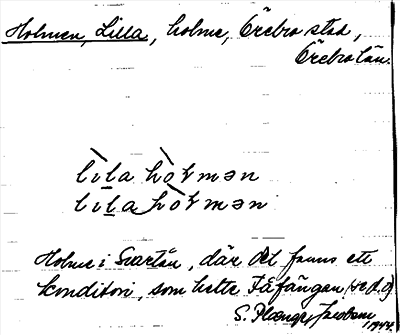 Holmen, Lilla, holme, Örebro stad,
Örebro län.
lìla hòɫmən
lila hòɫmən
Holme i Svartån, där det fanns ett
konditori, som hette Fåfängan (se d.o)
S. 1944.